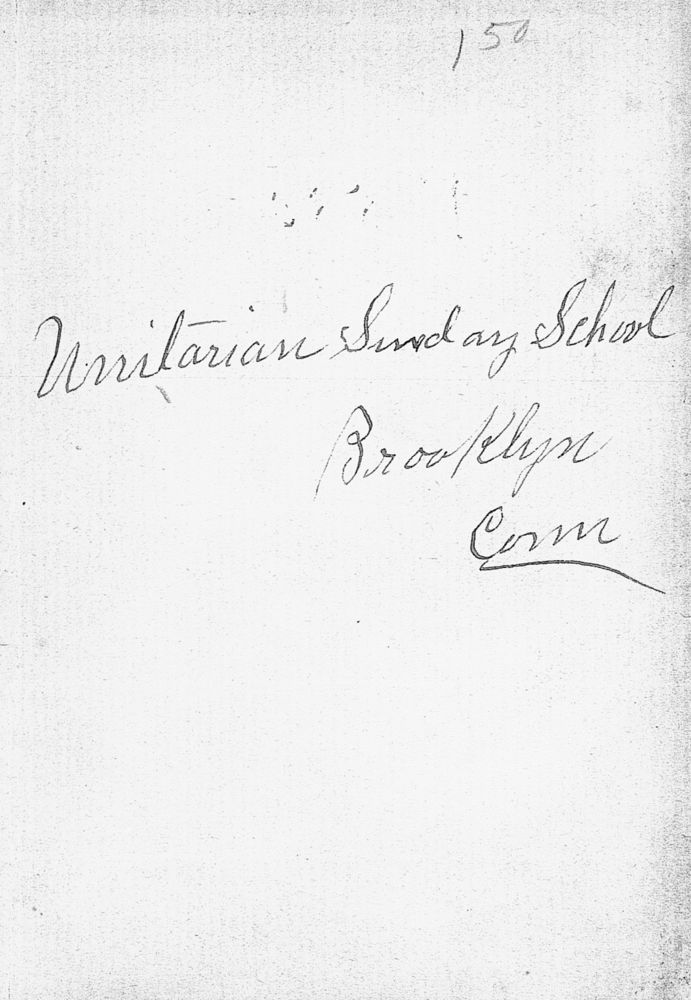 150
Unitarian Sunday School
Brooklyn
Conn